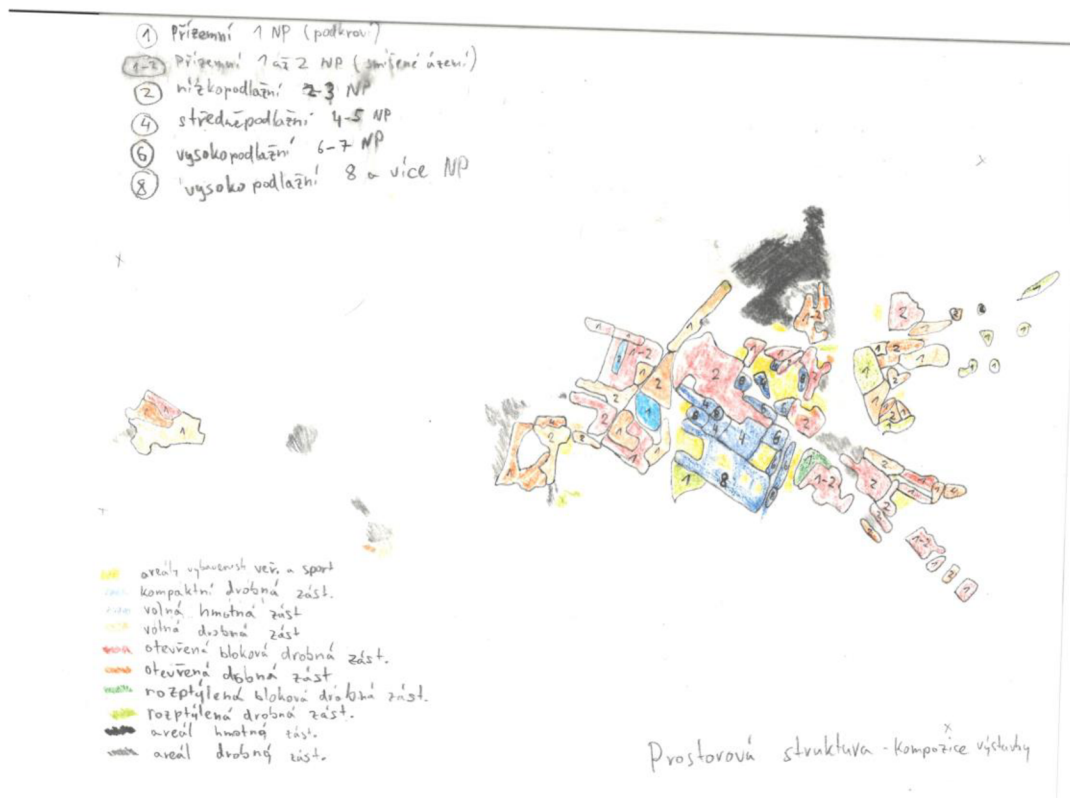 1 Přízemní 1 NP (podkroví)
1-2 Přízemní 1 až 2 NP (smíšené území)
2 nízkopodlažní 2-3 NP
4 středněpodlažní 4-5 NP
6 vysokopodlažní 6-7 NP
8 vysoko podlažní 8 a více NP
areály vybavenosti veř. a sport
kompaktní drobná zást.
volná hmotná zást
volná drobná zást
otevřená bloková drobná zást.
otevřená drobná zást
rozptýlená bloková drobná zást.
rozptýlená drobná zást.
areál hmotný zást.
areál drobný zást.
Prostorová struktura - kompozice výstavby